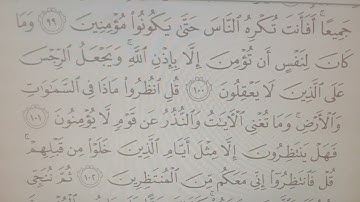 جَمِيعًا ۚ أَفَأَنتَ تُكْرِهُ ٱلنَّاسَ حَتَّىٰ يَكُونُوا۟ مُؤْمِنِينَ ٩٩ وَمَا
كَانَ لِنَفْسٍ أَن تُؤْمِنَ إِلَّا بِإِذْنِ ٱللَّهِ ۚ وَيَجْعَلُ ٱلرِّجْسَ
عَلَى ٱلَّذِينَ لَا يَعْقِلُونَ ١٠٠ قُلِ ٱنظُرُوا۟ مَاذَا فِى ٱلسَّمَٰوَٰتِ
وَٱلْأَرْضِ ۚ وَمَا تُغْنِى ٱلْءَايَٰتُ وَٱلنُّذُرُ عَن قَوْمٍ لَّا يُؤْمِنُونَ ١٠١
فَهَلْ يَنتَظِرُونَ إِلَّا مِثْلَ أَيَّامِ ٱلَّذِينَ خَلَوْا۟ مِن قَبْلِهِمْ ۚ
قُلْ فَٱنتَظِرُوٓا۟ إِنِّى مَعَكُم مِّنَ ٱلْمُنتَظِرِينَ ١٠٢ ثُمَّ نُنَجِّى